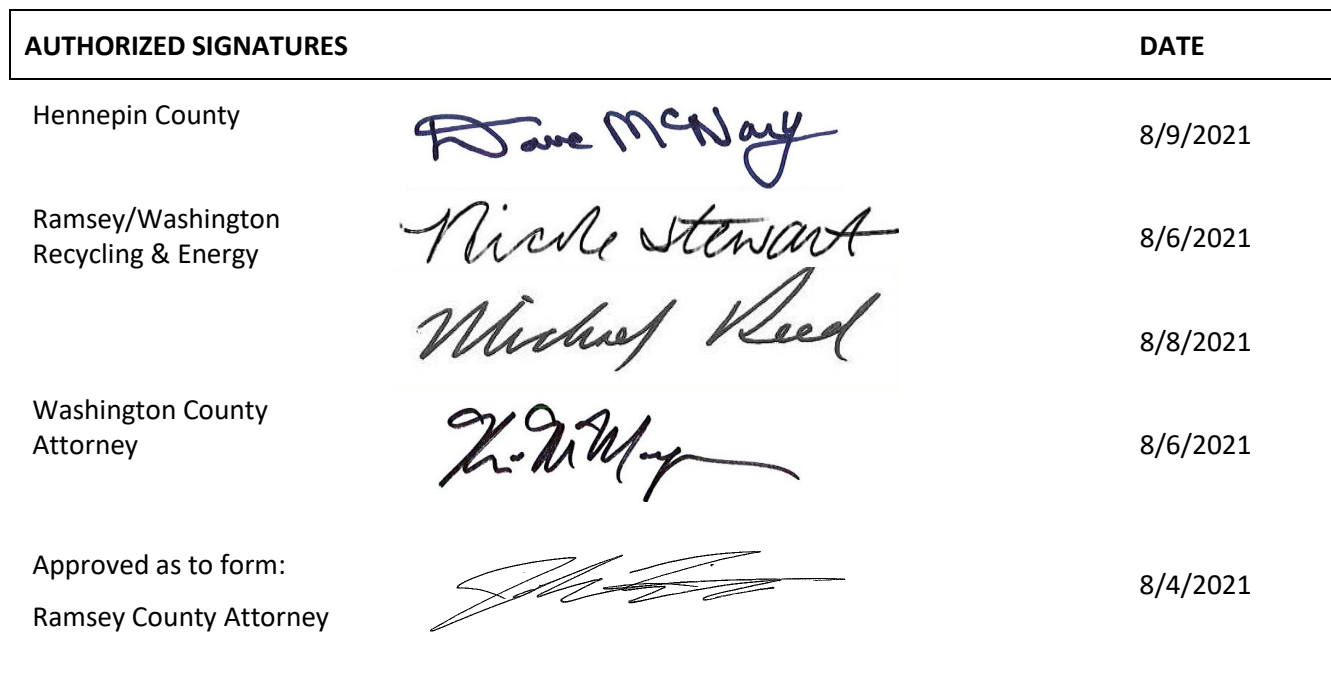 AUTHORIZED SIGNATURES DATE
Hennepin County Dave McNary 8/9/2021
Ramsey/Washington
Recycling & Energy Nicole Stewart 8/6/2021
Michael Reed 8/8/2021
Washington County
Attorney 8/6/2021
Approved as to form:
Ramsey County Attorney 8/4/2021